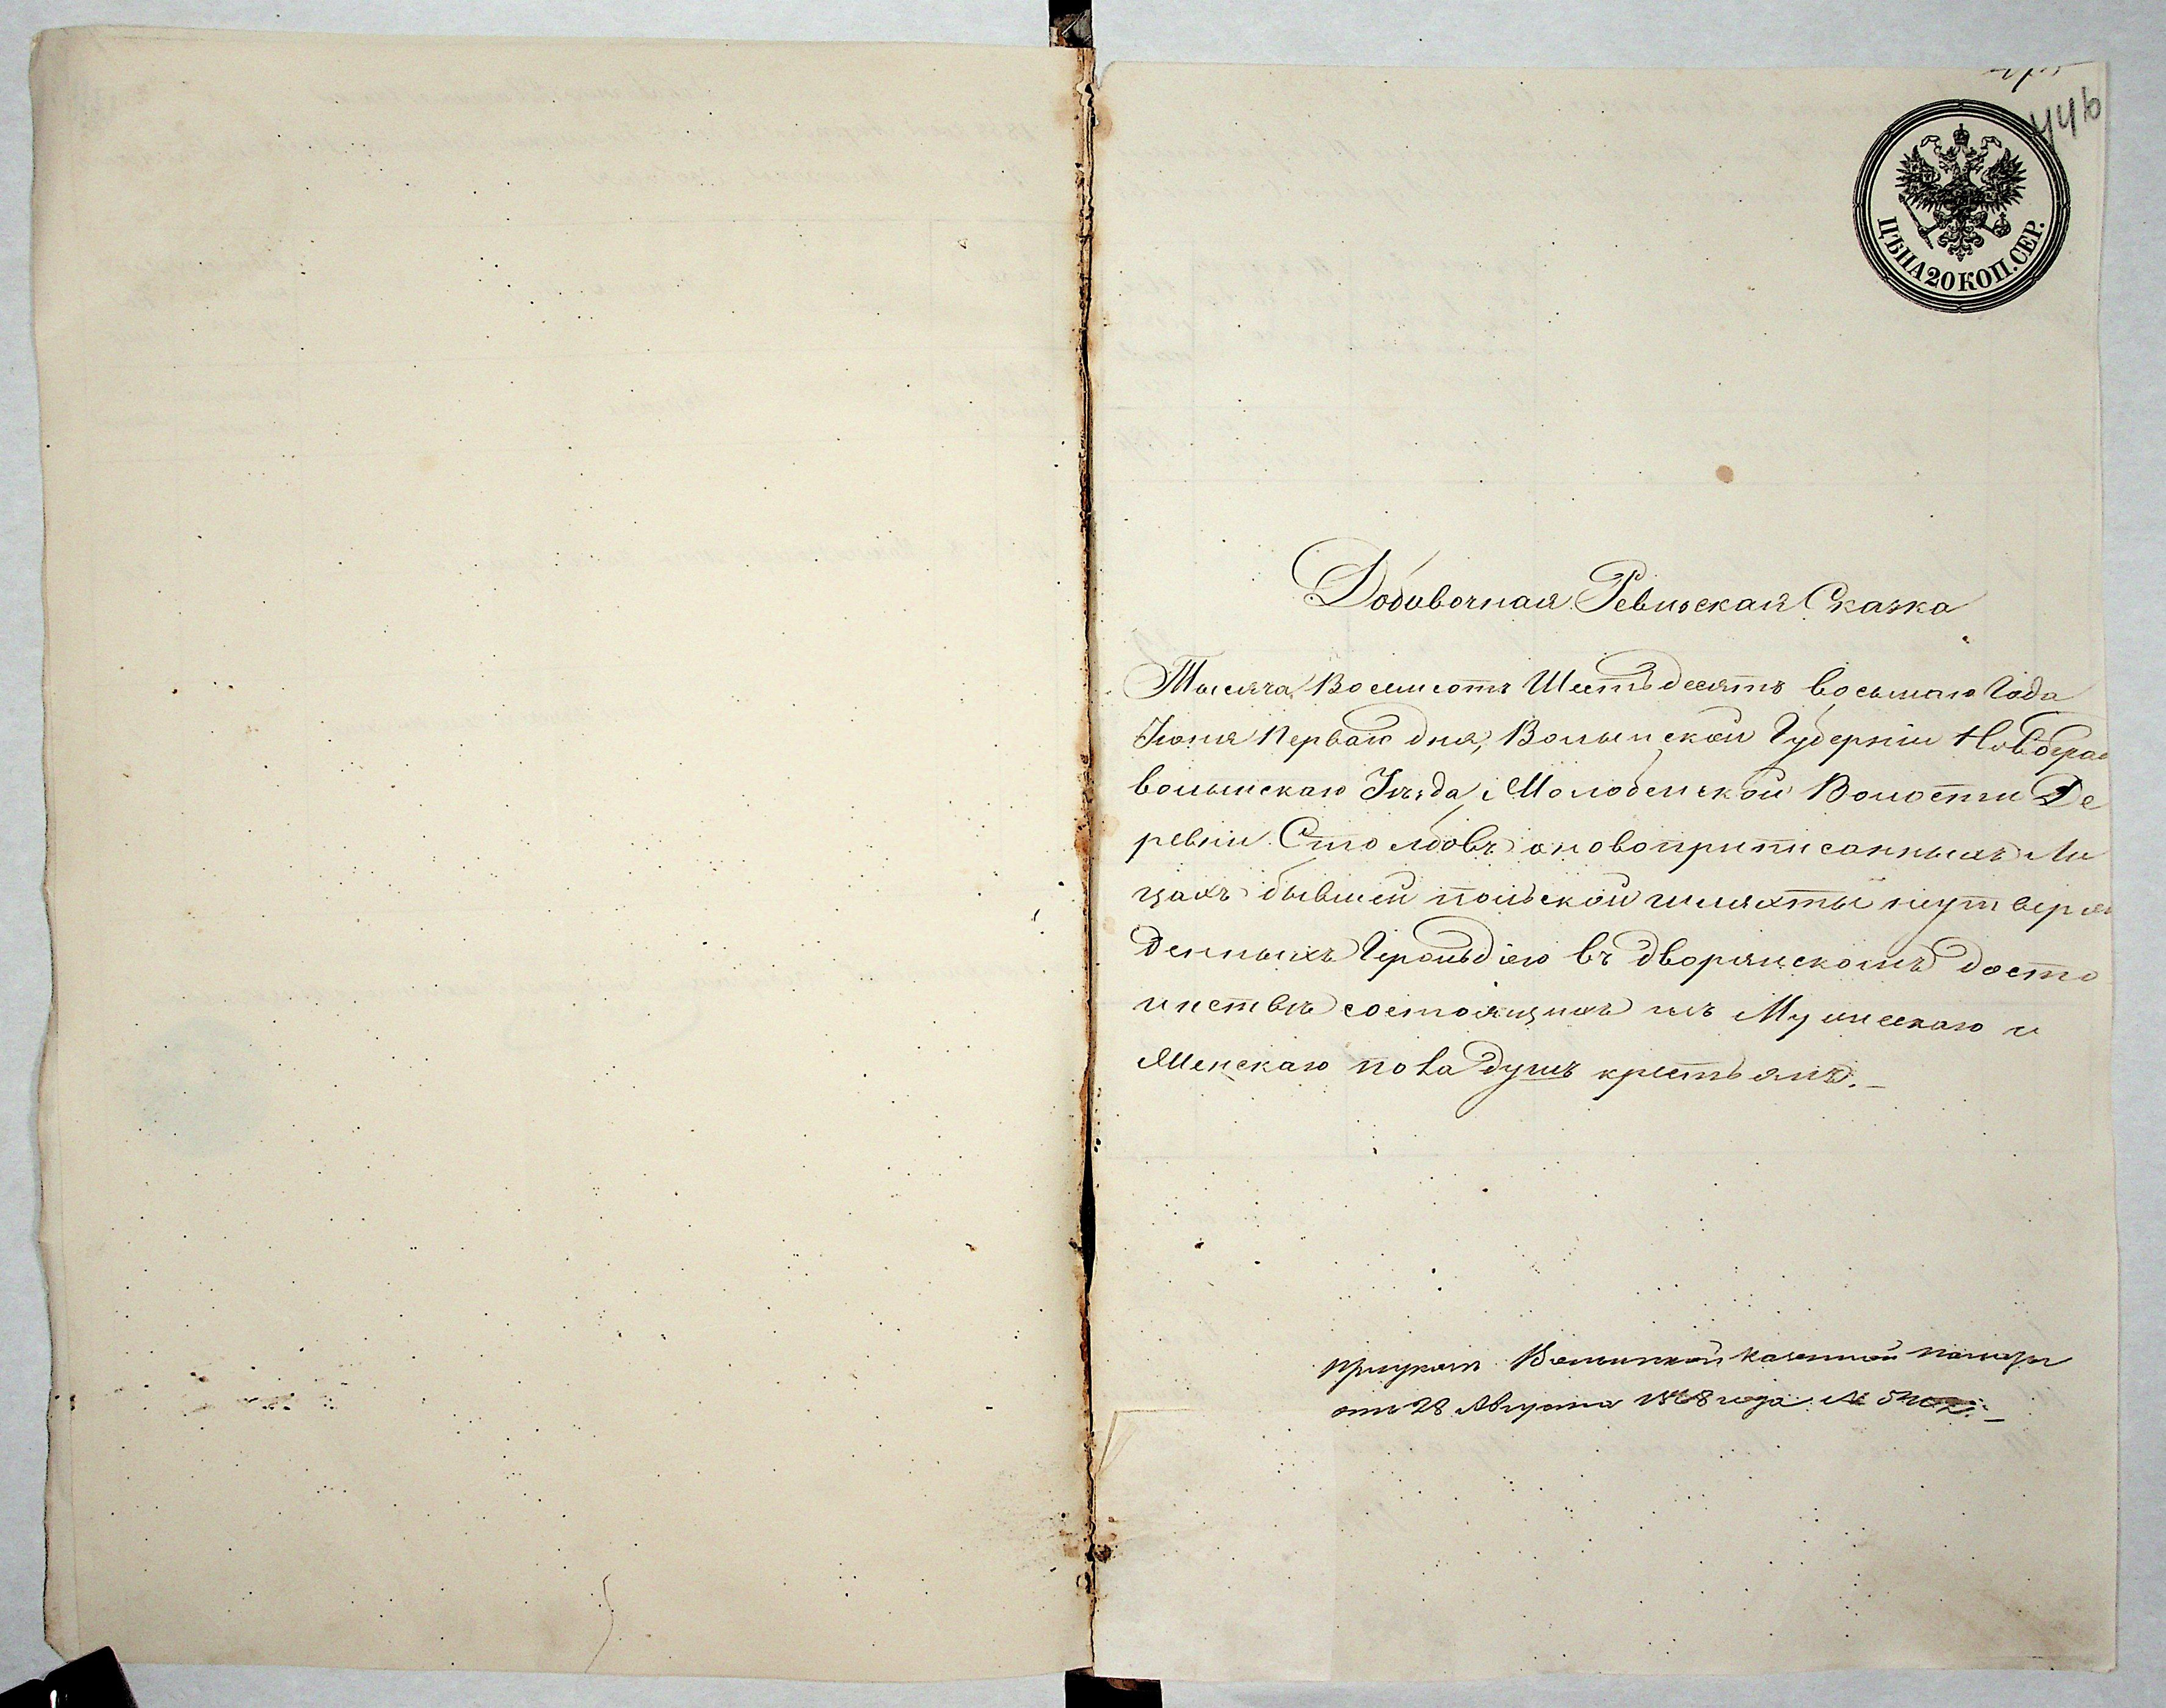 446
ЦѢНА 20 КОП. СЕР.
Добавочная Ревизская Сказка
Тысяча Восемсотъ Шестьдесятъ восьмаго Года
Іюня Перваго дня, Волынской Губерніи Новоград
волынскаго Уѣзда, Молодьковской Волости Де
ревни Столбовъ о новоприписанныхъ Ли
цахъ бывшей польской шляхты неутверж
денныхъ Герольдіею въ дворянскомъ досто
инствѣ состоящихъ изъ Мужескаго и
Женскаго пола душъ крестьянъ.
Волынской Казенной палаты
отъ 28 Августа 1868 года №